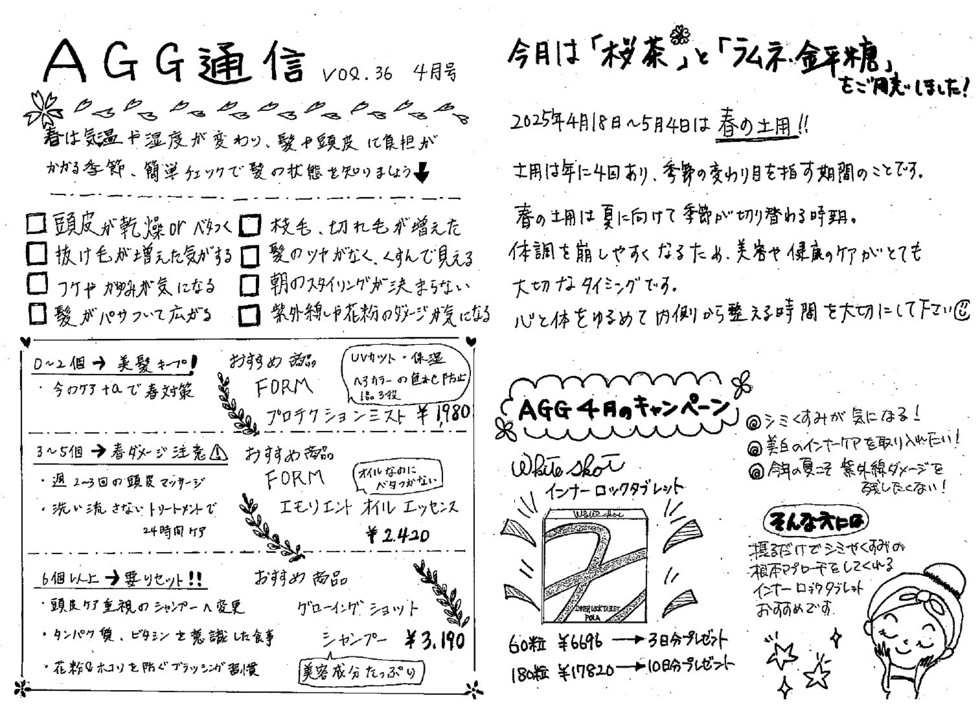 AGG通信 VOL.36 4月号
春は気温や湿度が変わり、髪や頭皮に負担が
かかる季節、簡単チェックで髪の状態を知りましょう⬇
□ 頭皮が乾燥orベタつく
□ 抜け毛が増えた気がする
□ フケやかゆみが気になる
□ 髪がパサついて広がる
□ 枝毛、切れ毛が増えた
□ 髪のツヤがなく、くすんで見える
□ 朝のスタイリングが決まらない
□ 紫外線や花粉のダメージが気になる
0〜2個→美髪キープ!
・今のケア+αで春対策
おすすめ商品
FORM
プロテクションミスト ¥1,980
UVカット・保湿
ヘアカラーの色あせ防止
1品3役
3〜5個→春ダメージ注意⚠
・週2〜3回の頭皮マッサージ
・洗い流さないトリートメントで
24時間ケア
おすすめ商品
FORM
エモリエント オイル エッセンス
¥2.420
オイルなのに
ベタつかない
6個以上→要リセット!!
・頭皮ケア重視のシャンプーへ変更
・タンパク質、ビタミンを意識した食事
・花粉&ホコリを防ぐブラッシング習慣
おすすめ商品
グローイングショット
シャンプー ¥3,190
美容成分たっぷり
今月は「桜茶」と「ラムネ・金平糖」
をご用意しました!
2025年4月18日〜5月4日は 春の土用!!
土用は年に4回あり、季節の変わり目を指す期間のことです。
春の土用は夏に向けて季節が切り替わる時期。
体調を崩しやすくなるため、美容や健康のケアがとても
大切なタイミングです。
心と体をゆるめて内側から整える時間を大切にして下さい
AGG4月のキャンペーン
White shot
インナーロックタブレット
White shot
INNER LOCK TABLET
POLA
60粒 ¥6696 → 3日分プレゼント
180粒 ¥17820 → 10日分プレゼント
◎シミくすみが気になる!
◎美白のインナーケアを取り入れたい!
◎今年の夏こそ紫外線ダメージを
残したくない!
そんな方には
摂るだけでシミやくすみの
根本アプローチをしてくれる
インナーロックタブレット
おすすめです